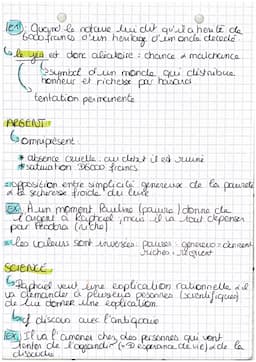 EX: Quand le notaire lui dit qu'il a hérité de
6000 francs d'un héritage d'un oncle décédé
le jeu est donc aléatoire : chance ≠ malchance
symbol d'un monde qui distribue
honneur et richesse par hasard
tentation permanente
ARGENT
omniprésent
* absence cruelle : au début il est ruiné
* saturation : 26000 francs
opposition entre simplicité généreuse de la pauvreté
≠ la sécheresse froide du luxe
EX: A un moment Pauline (pauvre) donne de
l'argent à Raphaël, mais il va tout dépenser
par Feodora (riche)
les valeurs sont inversés : pauvres : généreux
riches :
SCIENCE
Raphaël veut une explication rationnelle → il
va demander à plusieurs personnes (scientifiques)
de lui donner une explication.
cf discours avec l'antiquaire
EX: Il va l'amener chez des personnes qui vont
tenter de l'agrandir (→ espérance de vie) → de la
dissoudre